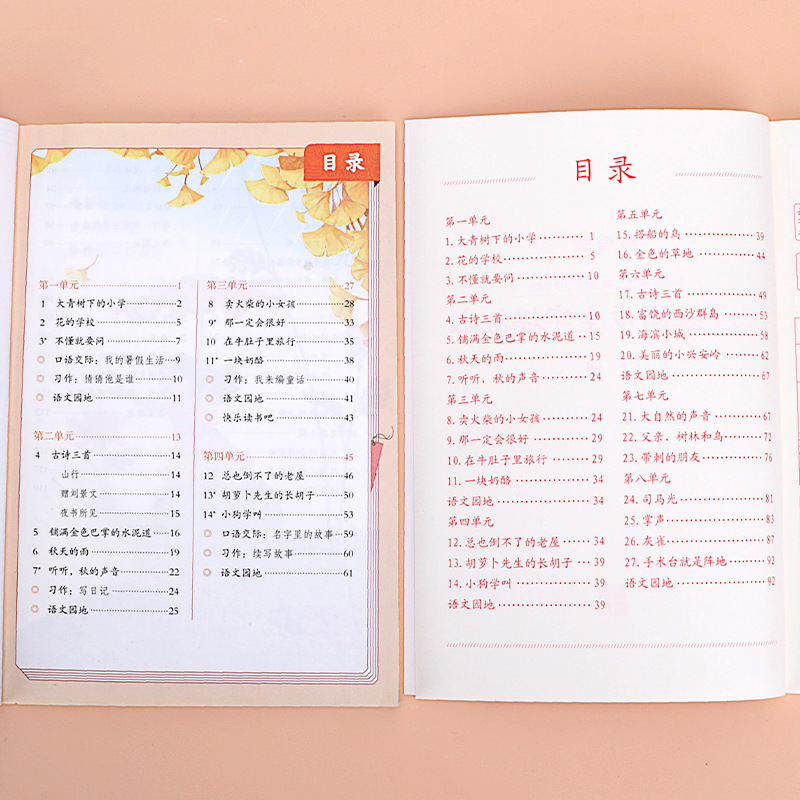 目录
第一单元 1
1 大青树下的小学 2
2 花的学校 5
3* 不懂就要问 7
口语交际：我的暑假生活 9
习作：猜猜他是谁 10
语文园地 11
第二单元 13
4 古诗三首 14
山行 14
赠刘景文 14
夜书所见 15
5 铺满金色巴掌的水泥道 16
6 秋天的雨 19
7* 听听，秋的声音 22
习作：写日记 24
语文园地 25
第三单元 27
8 卖火柴的小女孩 28
9* 那一定会很好 33
10 在牛肚子里旅行 35
11* 一块奶酪 38
习作：我来编童话 40
语文园地 41
快乐读书吧 43
第四单元 45
12 总也倒不了的老屋 46
13* 胡萝卜先生的长胡子 50
14* 小狗学叫 53
口语交际：名字里的故事 59
习作：续写故事 60
语文园地 61
目录
第一单元
1.大青树下的小学 1
2.花的学校 5
3.不懂就要问 10
第二单元
4.古诗三首 10
5.铺满金色巴掌的水泥道 15
6.秋天的雨 19
7.听听，秋的声音 24
第三单元
8.卖火柴的小女孩 24
9.那一定会很好 29
10.在牛肚子里旅行 29
11.一块奶酪 34
语文园地 34
第四单元
12.总也倒不了的老屋 34
13.胡萝卜先生的长胡子 39
14.小狗学叫 39
语文园地 39
第五单元
15.搭船的鸟 39
16.金色的草地 44
第六单元
17.古诗三首 49
18.富饶的西沙群岛 53
19.海滨小城 58
20.美丽的小兴安岭 62
语文园地 67
第七单元
21.大自然的声音 67
22.父亲、树林和鸟 72
23.带刺的朋友 76
第八单元
24.司马光 81
25.掌声 83
26.灰雀 87
27.手术台就是阵地 92
语文园地 92